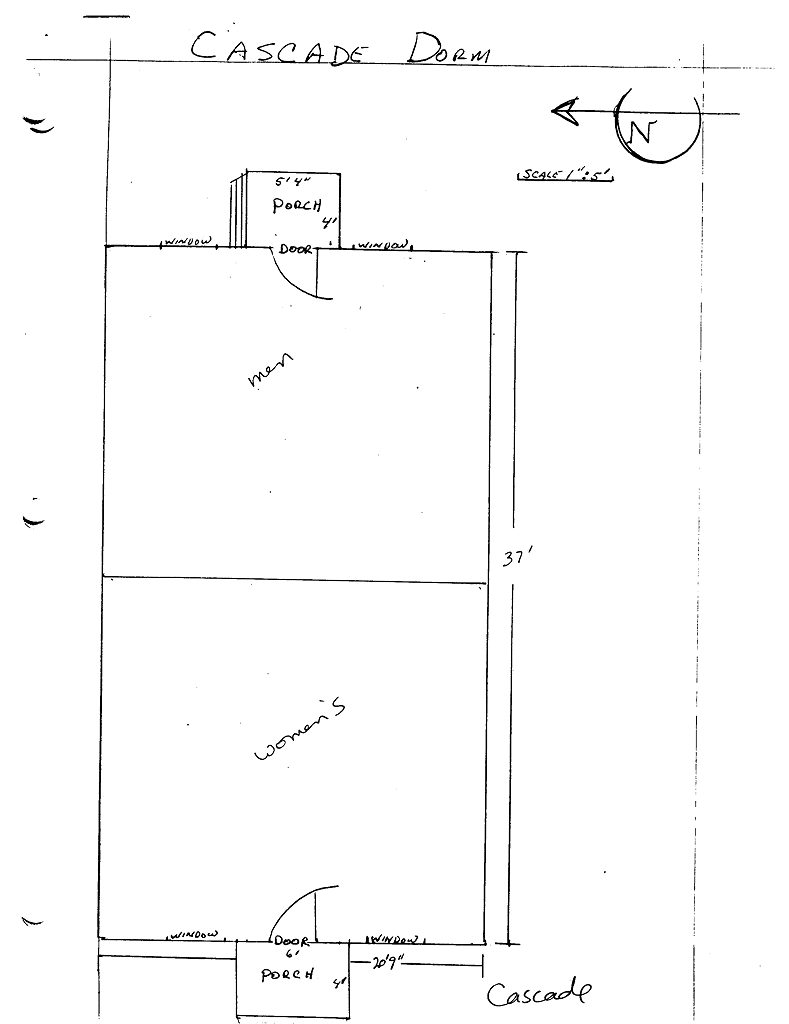 CASCADE DORM
N
SCALE 1" : 5'
5' 4"
PORCH
4'
WINDOW
DOOR
WINDOW
men
37'
women's
WINDOW
DOOR
WINDOW
6'
PORCH
4'
20'9"
Cascade